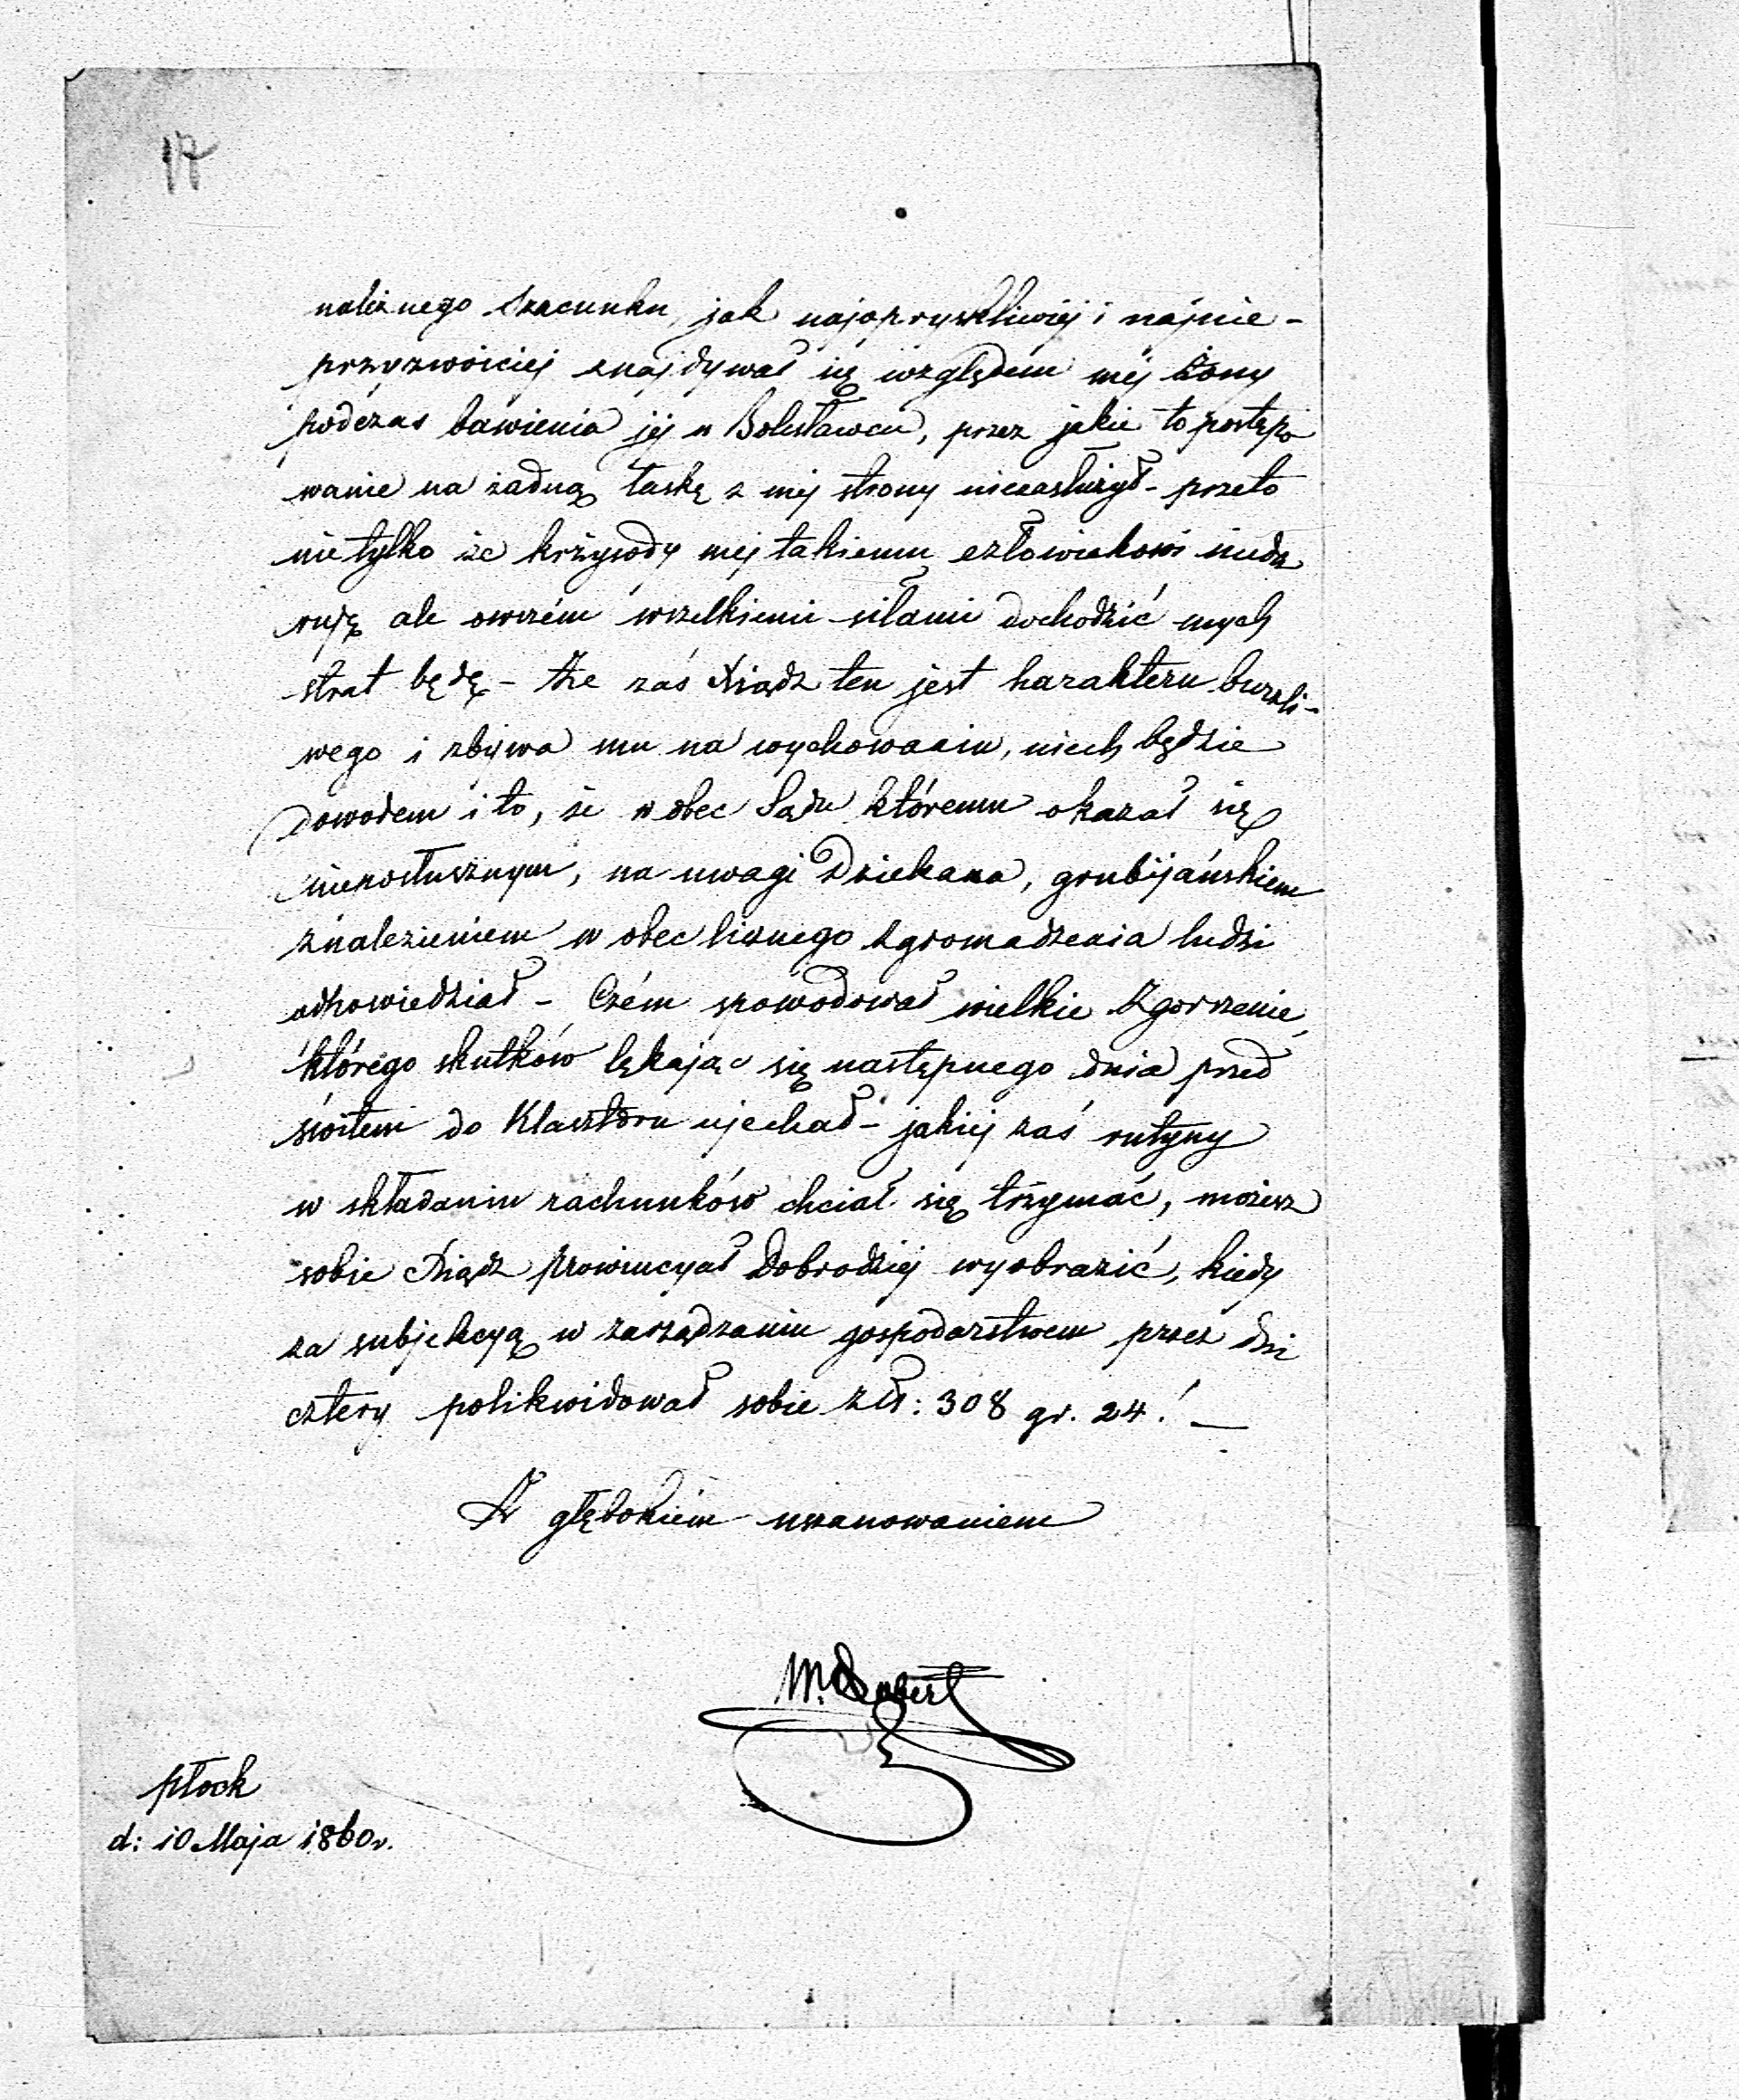 17
należnego szacunku, jak najopryskliwiéj i najnie-
przyzwoiciéj znajdywał się względem méj żony
podczas bawienia jéj w Bolesławcu, przez jakie to postępo
wanie na żadną łaskę z méj strony niezasłużył - przeto
nie tylko że krzywdy mej takiemu człowiekowi nieda
ruję ale owszém wszelkiemi siłami dochodzić mych
strat będę - Że zaś Xiądz ten jest harakteru burzli-
wego i zbywa mu na wychowaniu, niech będzie
dowodem i to, że w obec Sądu któremu okazał się
nieposłusznym, na uwagi Dziekana, grubijańskiem
znalezieniem w obec licznego zgromadzenia ludzi
odpowiedział - Czém spowodował wielkie Zgorszenie,
którego skutków lękając się następnego dnia przed
świtem do Klasztoru ujechał - jakiéj zaś rutyny
w składaniu rachunków chciał się trzymać, możesz
sobie Xiądz Prowincyał Dobrodziéj wyobrazić, kiedy
za subjekcyą w zarządzaniu gospodarstwem przez dni
cztery polikwidował sobie Złt: 308 gr. 24! —
Z głębokiém uszanowaniem
Płock
d: 10 Maja 1860 r.